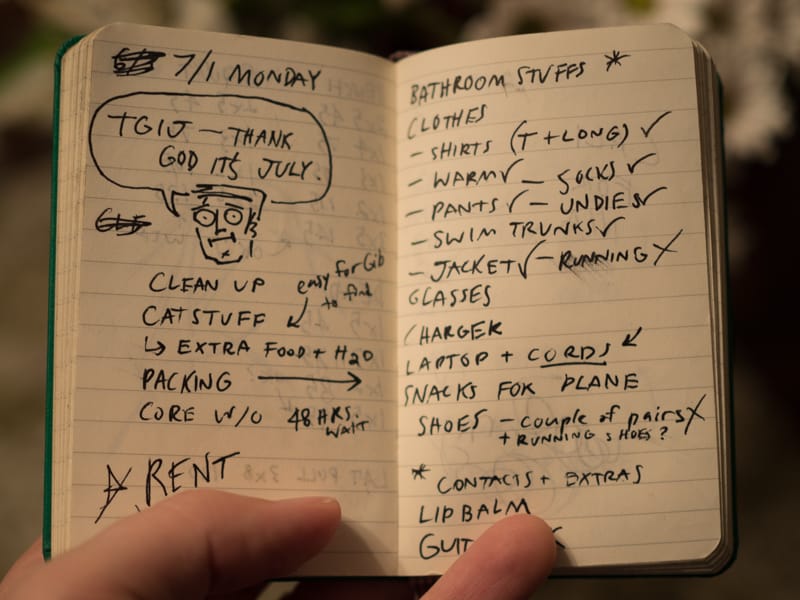 7/1 MONDAY
TGIJ — THANK
GOD IT'S JULY.
CLEAN UP
easy for Gib
to find
CAT STUFF
↳ EXTRA FOOD + H2O
PACKING →
CORE W/O 48 HRS.
WAIT
RENT
BATHROOM STUFFS *
CLOTHES
- SHIRTS (T + LONG) ✓
- WARM ✓ - SOCKS ✓
- PANTS ✓ - UNDIES ✓
- SWIM TRUNKS ✓
- JACKET ✓ - RUNNING X
GLASSES
CHARGER
LAPTOP + CORDS
SNACKS FOR PLANE
SHOES - couple of pairs X
+ RUNNING SHOES?
* CONTACTS + EXTRAS
LIP BALM